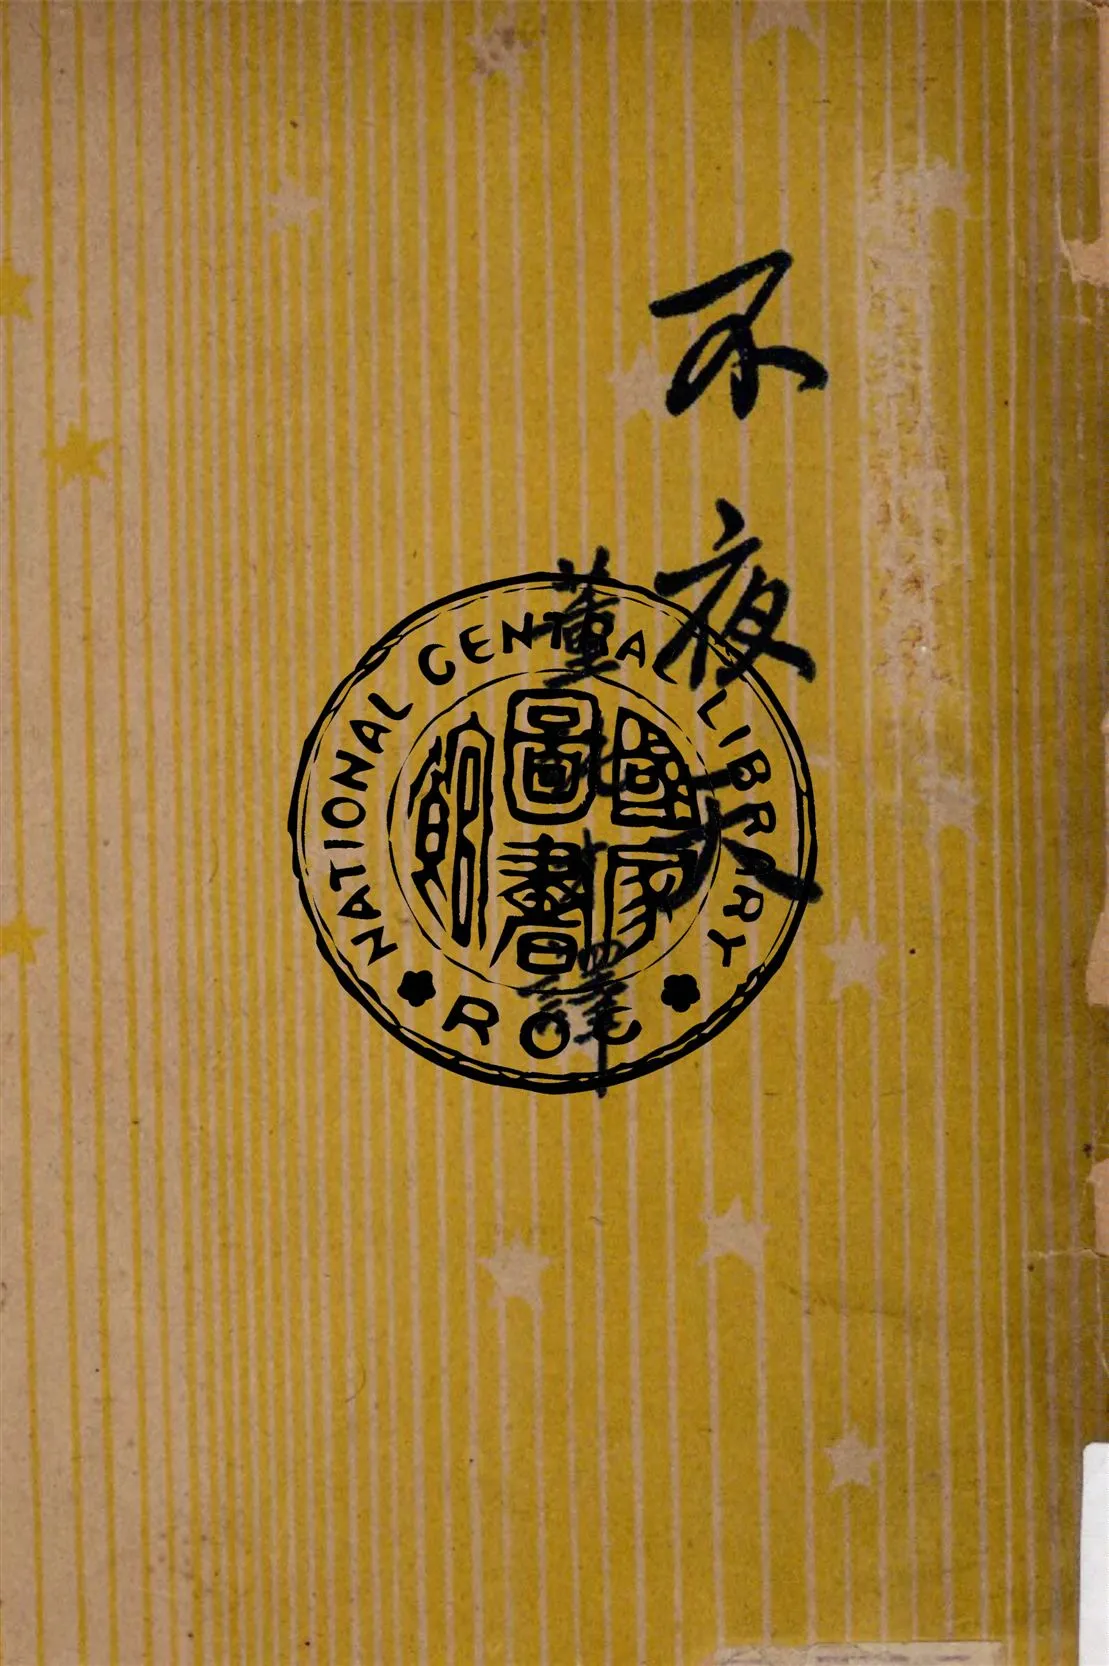 不夜天
董 譯
NATIONAL CENTRAL LIBRARY
國家
圖書
館
ROC